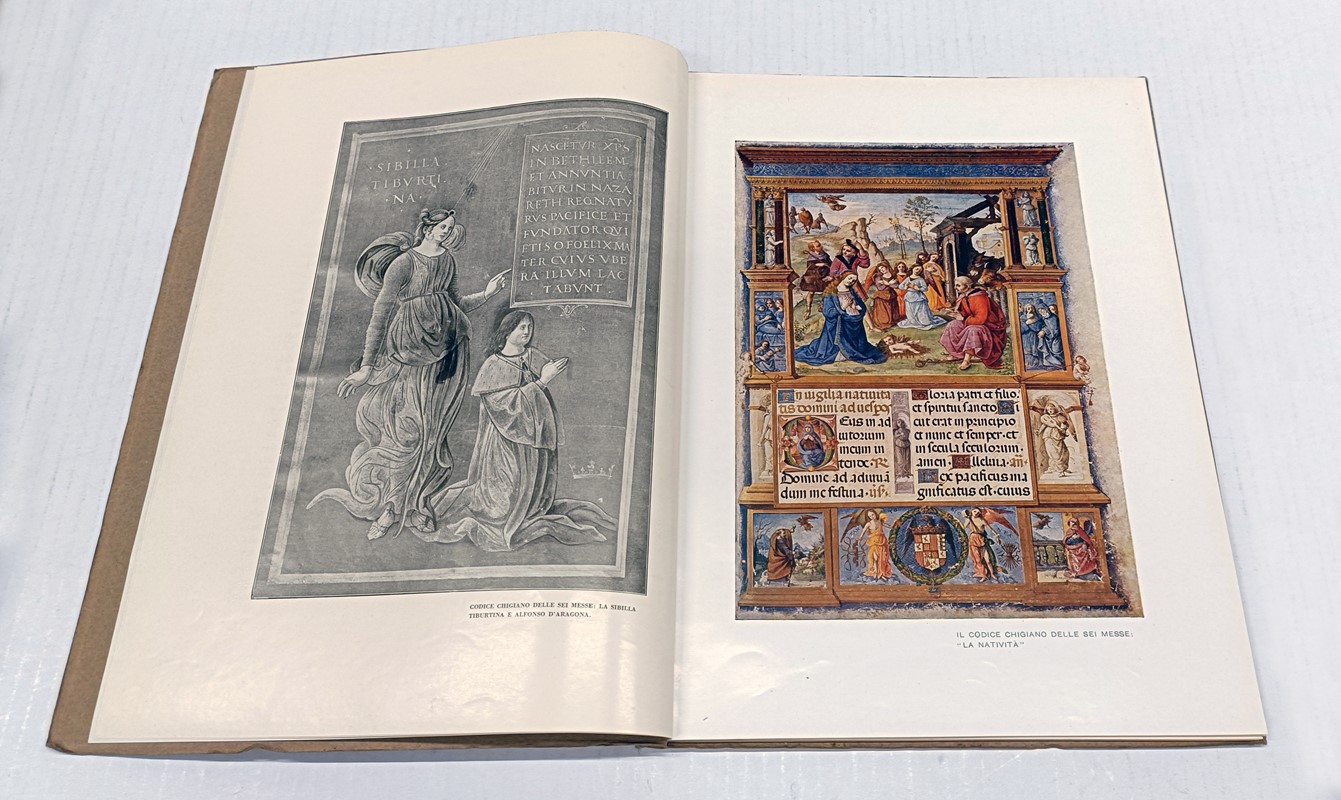 SIBILLA
TIBVRTI
NA
NASCETVR XPS
IN BETHLEEM
ET ANNVNTIA
BITVR IN NAZA
RETH REGNATV
RVS PACIFICE ET
FVNDATOR QVI
ETIS O FOELIX MA
TER CVIVS VBE
RA ILLVM LAC
TABVNT
CODICE CHIGIANO DELLE SEI MESSE: LA SIBILLA
TIBURTINA E ALFONSO D'ARAGONA.
In vigilia nativita
tis domini ad vesp̄o
Deus in ad
iutorium
meum in
tende · R̄
Domine ad adiuvā
dum me festina · v̄s.
Gloria patri et filio.
et spiritui sancto Si
cut erat in principio
et nunc et semper · et
in secula seculorum ·
amen · Alleluia · an̄ ·
Rex pacificus ma
gnificatus est · cuius
IL CODICE CHIGIANO DELLE SEI MESSE:
"LA NATIVITÀ"